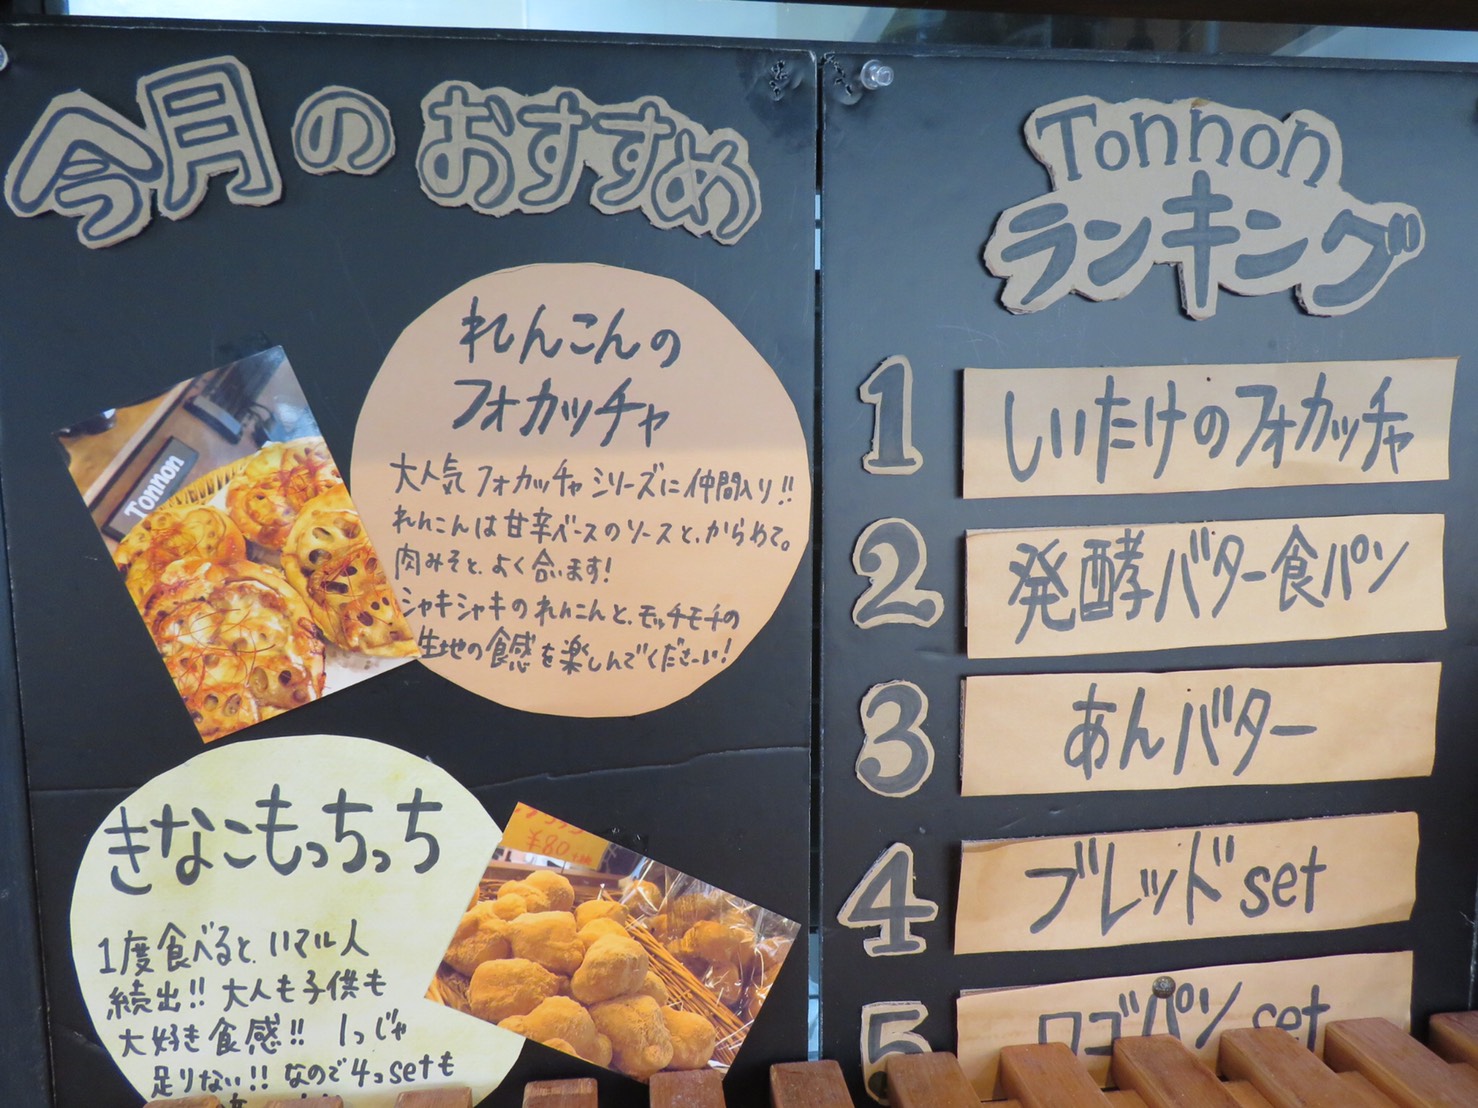 今月のおすすめ
れんこんの
フォカッチャ
大人気フォカッチャシリーズに仲間入り!!
れんこんは甘辛ベースのソースと、からめて。
肉みそと、よく合います!
シャキシャキのれんこんと、モッチモチの
生地の食感を楽しんでくださーい!
Tonnon
きなこもっちっち
1度食べると、ハマル人
続出!! 大人も子供も
大好き食感!! 1っじゃ
足りない!! なので4っsetも
¥80
Tonnon
ランキング
1 しいたけのフォカッチャ
2 発酵バター食パン
3 あんバター
4 ブレッドset
5 ロゴパンset